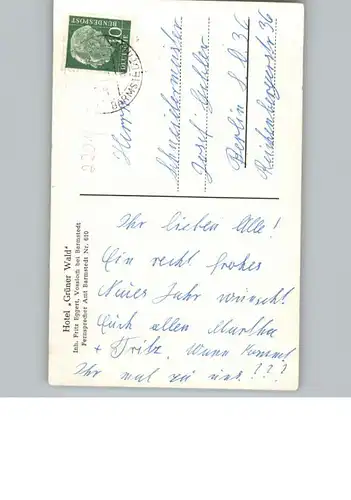 10
DEUTSCHE
BUNDESPOST
BARMSTEDT
Herrn
Schneidermeister
Josef
Berlin S.O. 36
Reichenbergerstraße 36
Hotel „Grüner Wald"
Inh. Fritz Eggert, Vossloch bei Barmstedt
Fernsprecher Amt Barmstedt Nr. 610
Ihr lieben Alle!
Ein recht frohes
Neues Jahr wünscht
Euch allen Martha
+ Fritz. Wann kommt
Ihr mal zu uns???